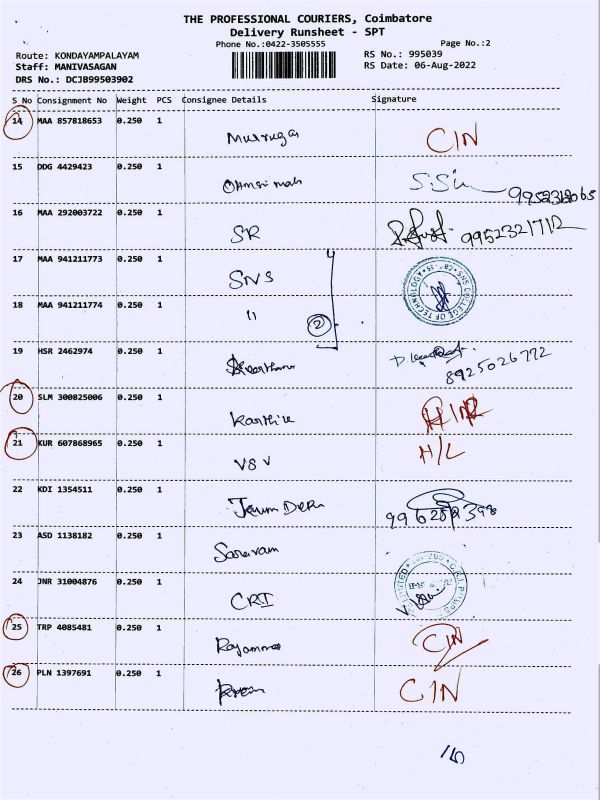 THE PROFESSIONAL COURIERS, Coimbatore
Delivery Runsheet - SPT
Phone No.:0422-3505555
Page No.:2
Route: KONDAYAMPALAYAM
RS No.: 995039
Staff: MANIVASAGAN
RS Date: 06-Aug-2022
DRS No.: DCJB99503902
S No Consignment No Weight PCS Consignee Details Signature
14 MAA 857818653 0.250 1 Murugas CIN
15 DDG 4429423 0.250 1
16 MAA 292003722 0.250 1 SR 9952321712
17 MAA 941211773 0.250 1 SNS SNS COLLEGE OF TECHNOLOGY
18 MAA 941211774 0.250 1 11 2
19 HSR 2462974 0.250 1 Keerthana 8925026772
20 SLM 300825006 0.250 1 Karthik
21 KUR 607868965 0.250 1 VSV H/L
22 KDI 1354511 0.250 1
23 ASD 1138182 0.250 1 Saravam
24 JNR 31004876 0.250 1 CRI
25 TRP 4085481 0.250 1 Rajamma CIN
26 PLN 1397691 0.250 1 CIN